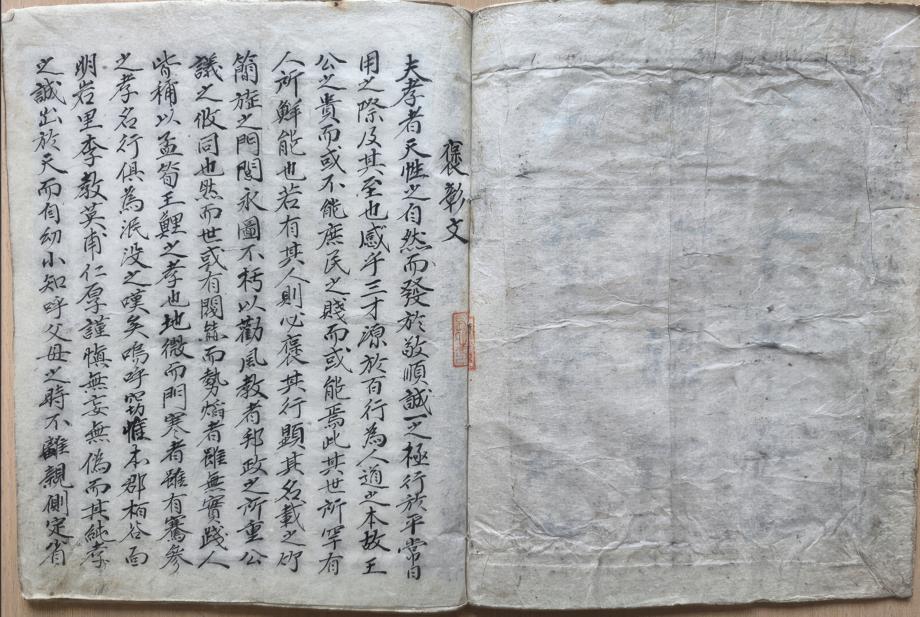 褒彰文
夫孝者天性之自然而發於敬順誠一之極行於平常日
用之際及其至也感乎三才源於百行為人道之本故王
公之貴而或不能庶民之賤而或能焉此其世所罕有
人所鮮能也若有其人則必褒其行顯其名載之竹
簡旌之門閭永圖不朽以勸風教者邦政之所重公
議之攸同也然而世或有閥䦨而勢焰者雖無實踐人
皆稱以孟筍王鯉之孝也地微而門寒者雖有騫參
之孝名行俱為泯没之嘆矣嗚呼窃惟本郡栢谷面
明岩里李教英甫仁厚謹愼無妄無偽而其純孝
之誠出於天而自幼小知呼父母之時不離親側定省